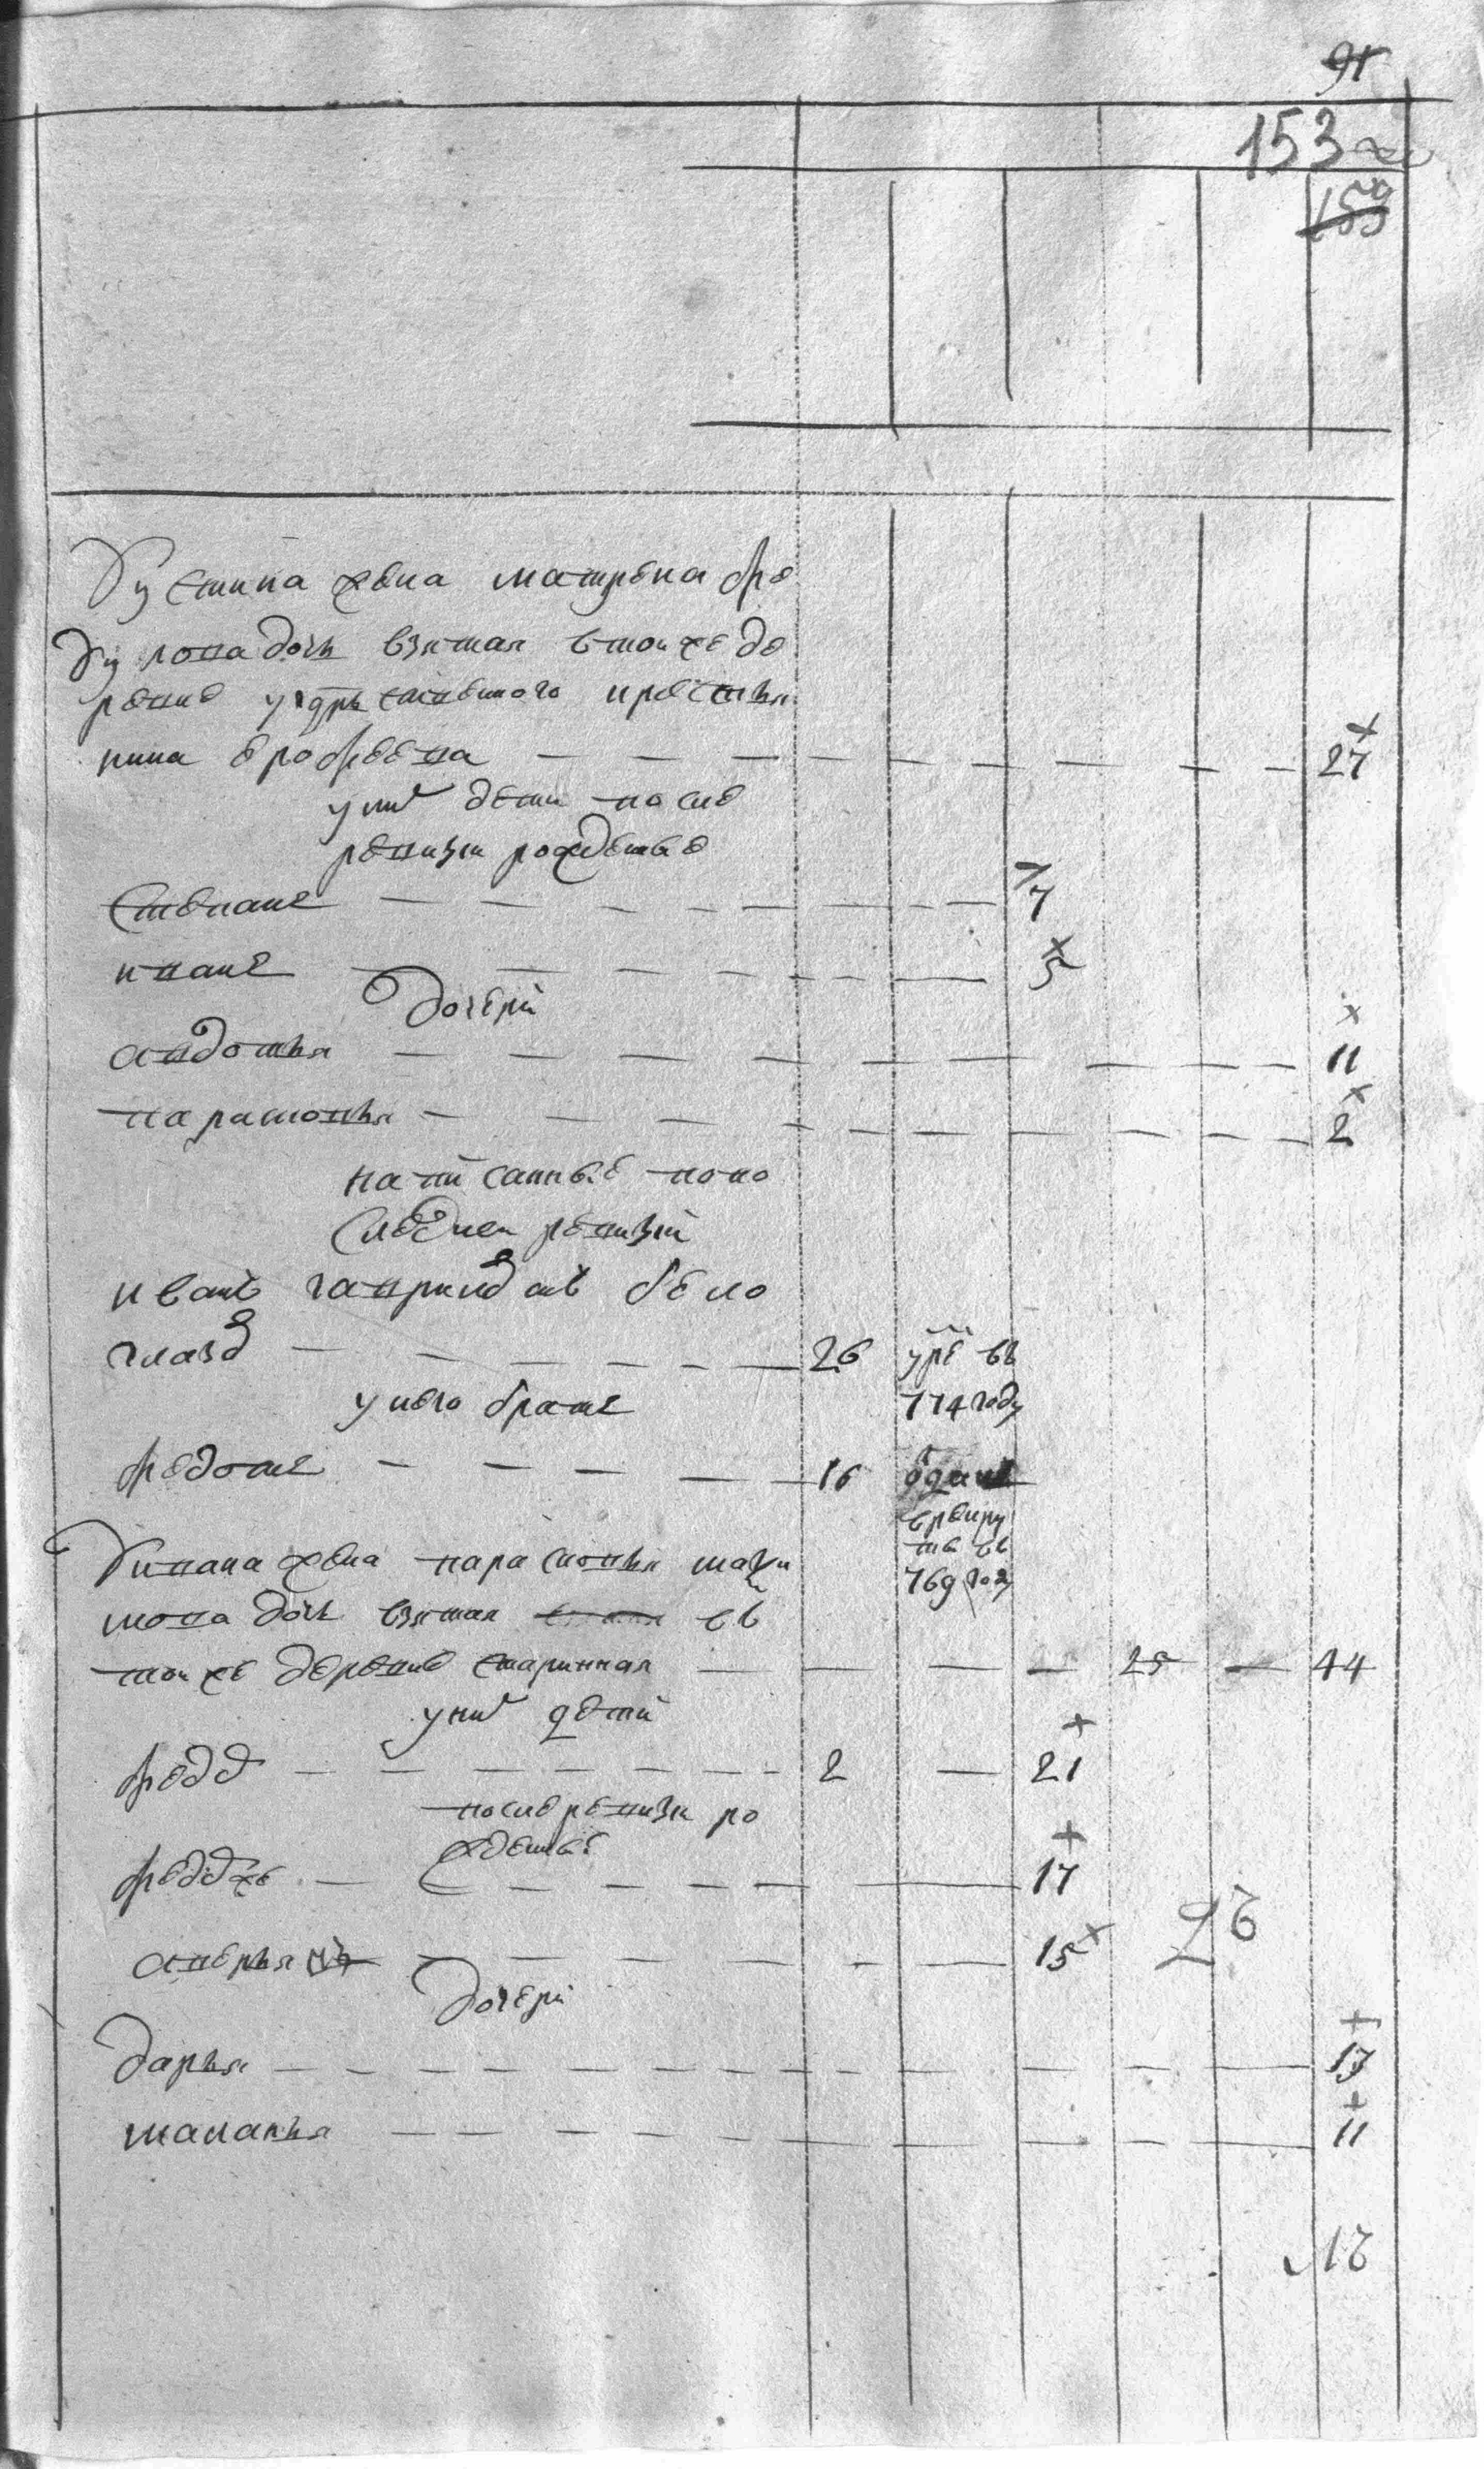 91
153
159
У устина жена матрена фе
дулова дочь взятая втоиже де
ревне угдрьственного крестья
нина ерофеева — 27
уних дети после
ревизи рожденые
степанъ — 7
иванъ — 5
дочери
авдотья — 11
парасковья — 2
написанные попо
следнеи ревизии
иванъ гавриловъ бело
глазовъ — 26 умре въ
774 году
унево братъ
федотъ — 16 отданъ
врекру
ты въ
769 году
У ивана жена парасковья
мова дочь взятая въ
тоиже деревне старинная — 25 — 44
уних дети
федоръ — 2 — 21
после ревизи ро
жденые
федоръже — 17
аверьянъ — 15
26
дочери
дарья — 13
маланья — 11
16